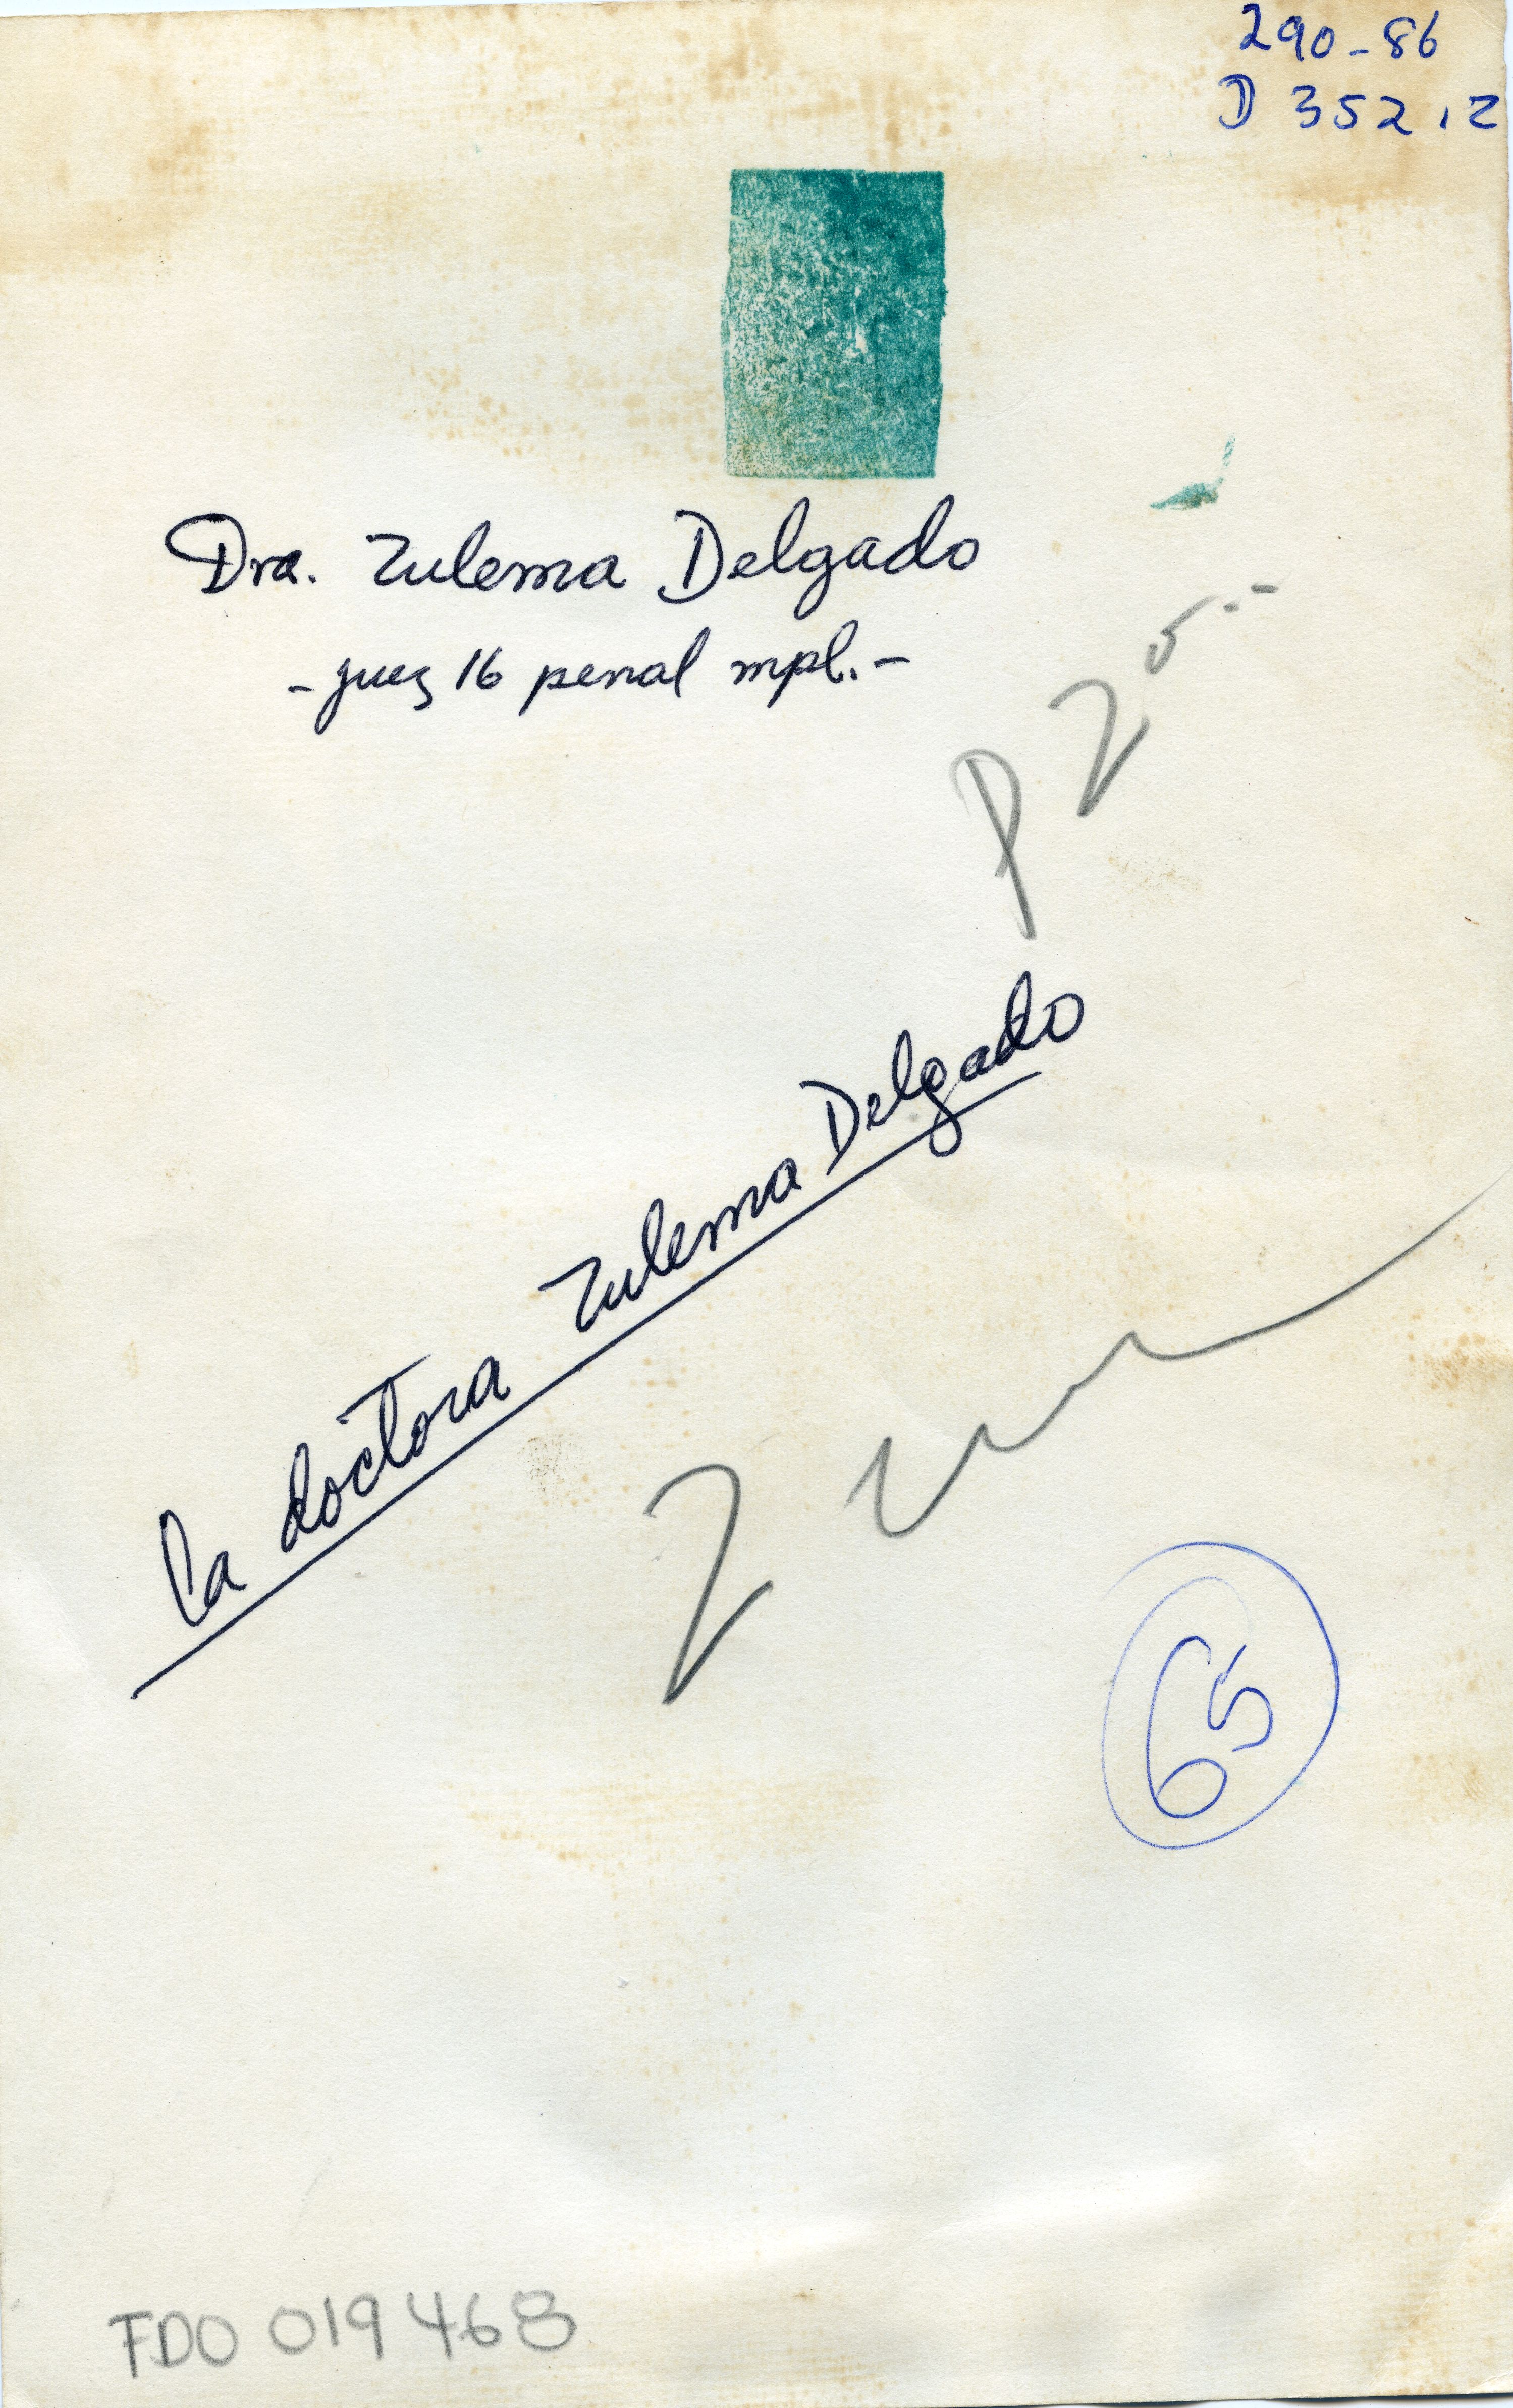 290-86
D 352.2
Dra. Zulema Delgado
- juez 16 penal mpl. -
P 25.-
La doctora Zulema Delgado
65
FDO 019468